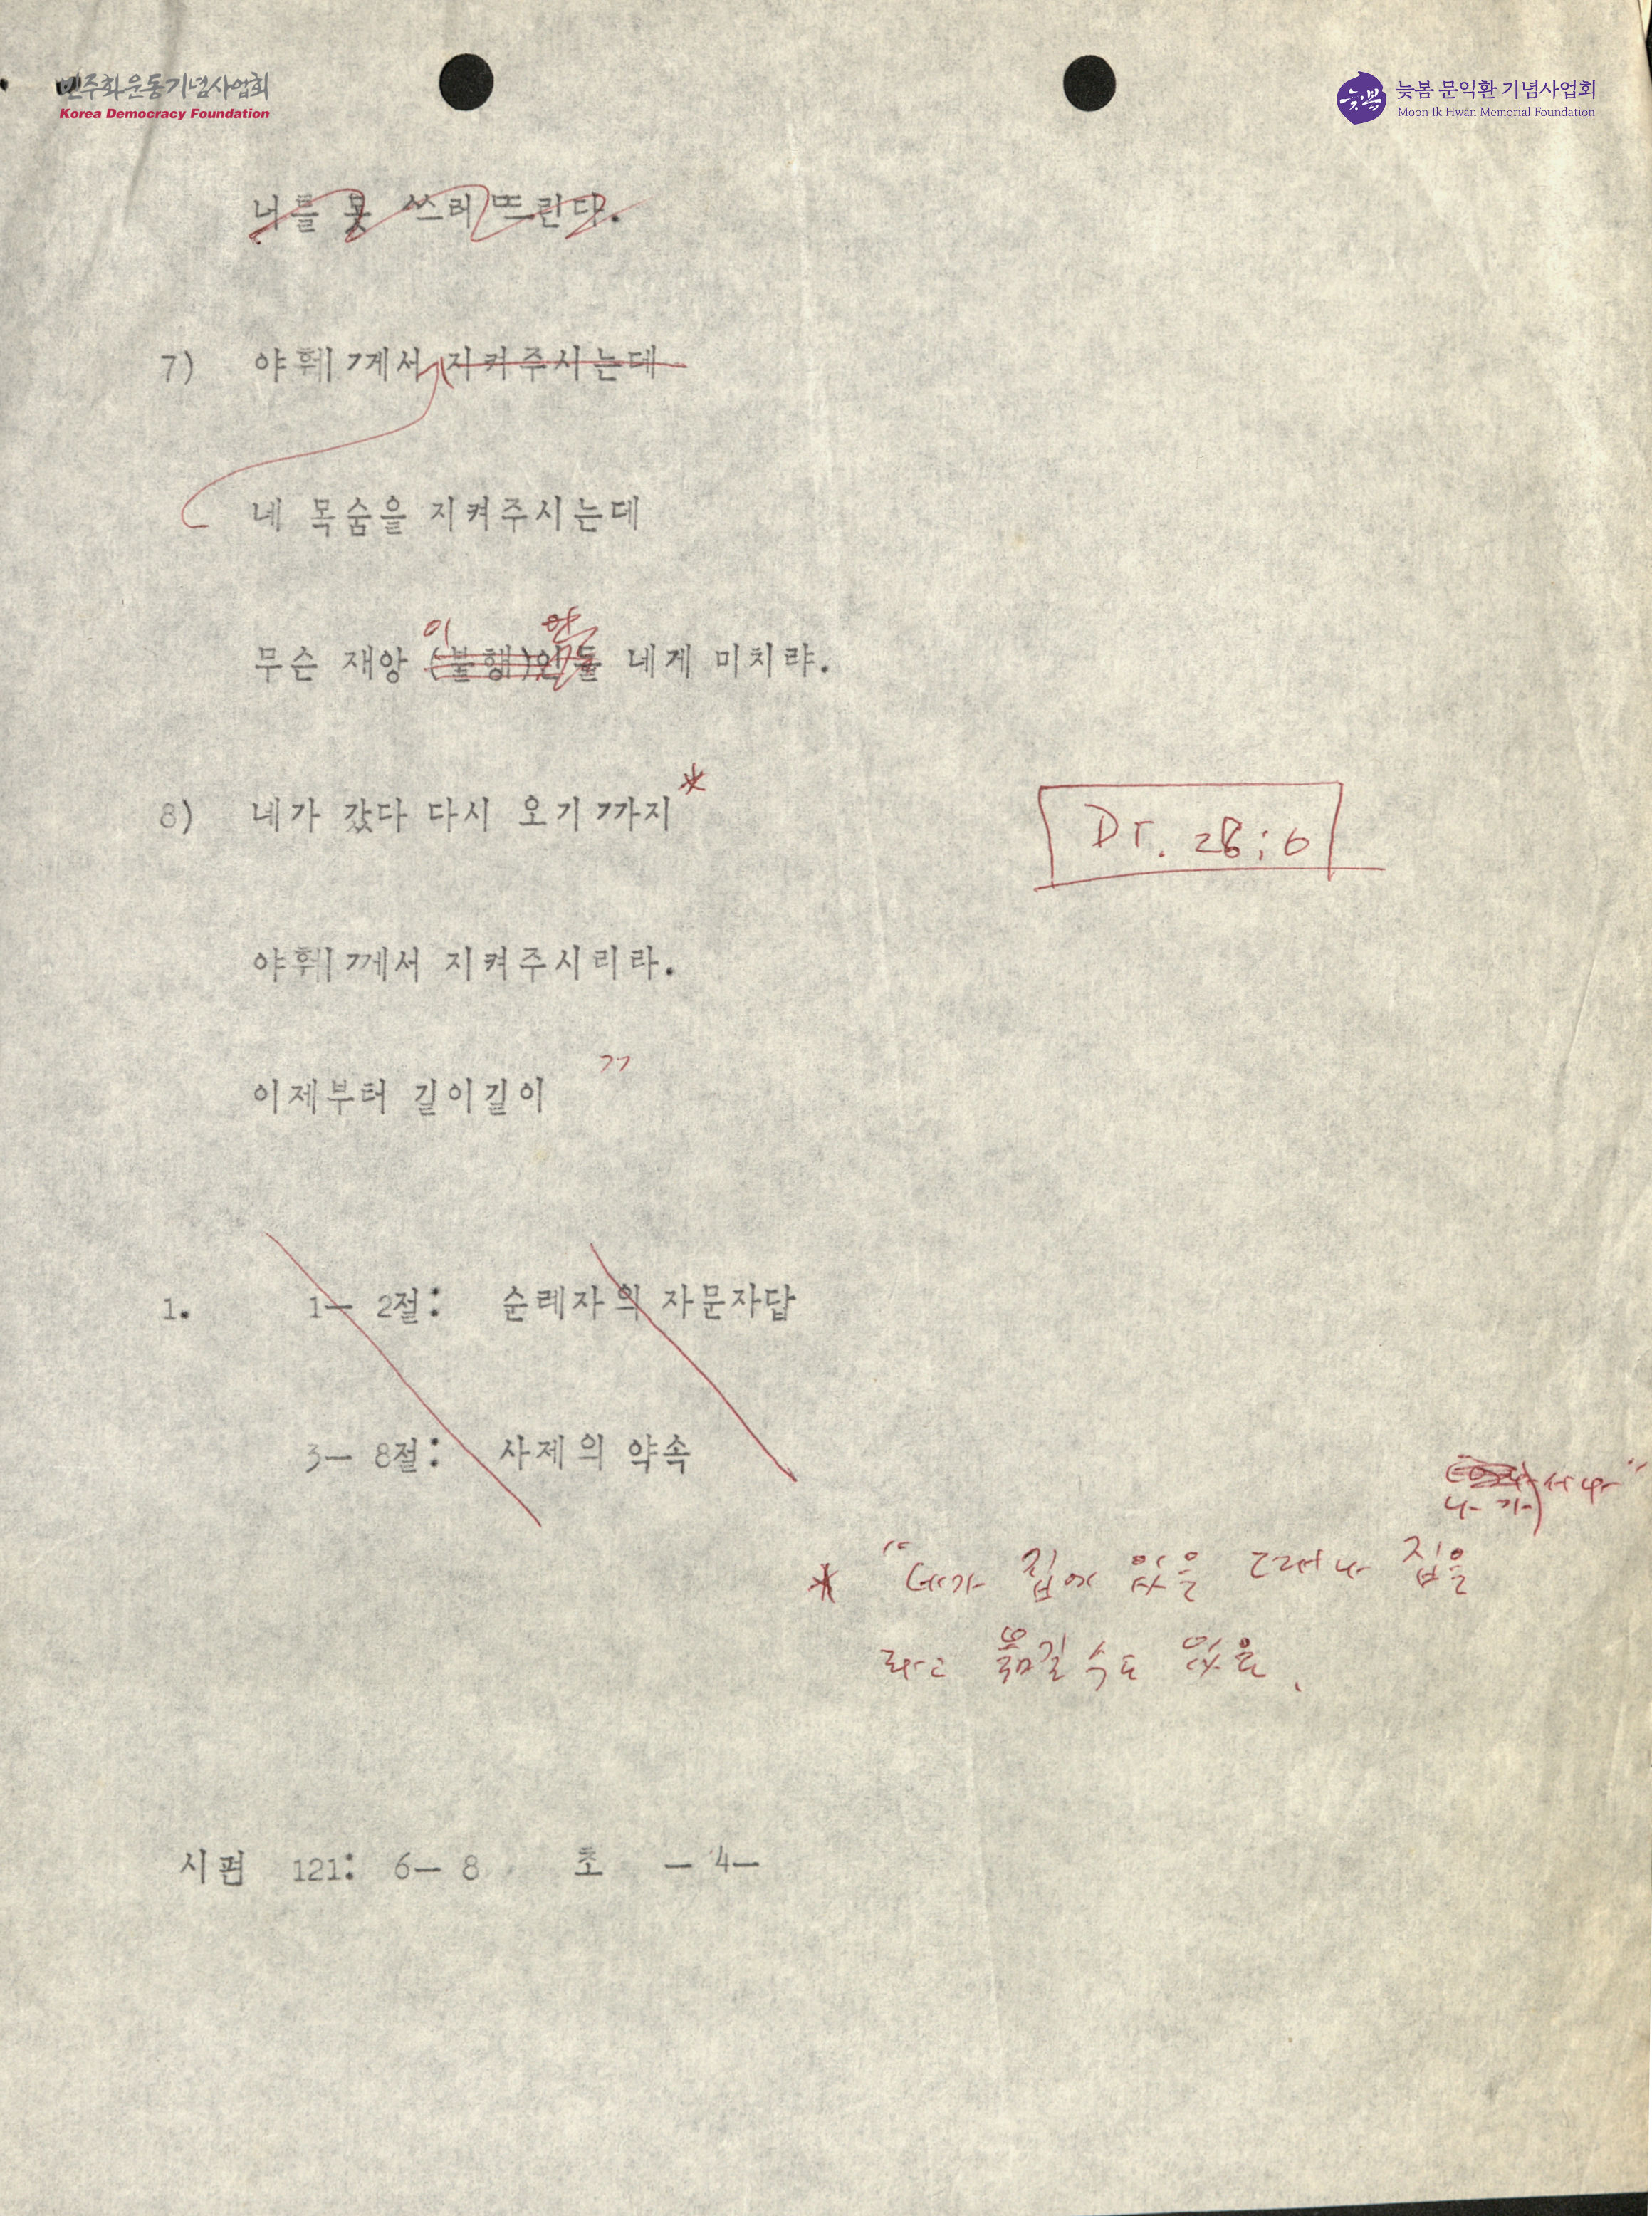 민주화운동기념사업회
Korea Democracy Foundation
늦봄
늦봄 문익환 기념사업회
Moon Ik Hwan Memorial Foundation
너를 못 쓰러뜨린다.
7) 야훼께서 지켜주시는데
네 목숨을 지켜주시는데
이
무슨 재앙 (불행)인들 네게 미치랴.
8) 네가 갔다 다시 오기까지*
Dt. 28:6
야훼께서 지켜주시리라.
이제부터 길이길이 "
1. 1— 2절: 순례자의 자문자답
3— 8절: 사제의 약속
나가
* "네가 집에 있을 때나 집을
라고 옮길 수도 있음.
시편 121: 6— 8 초 — 4—